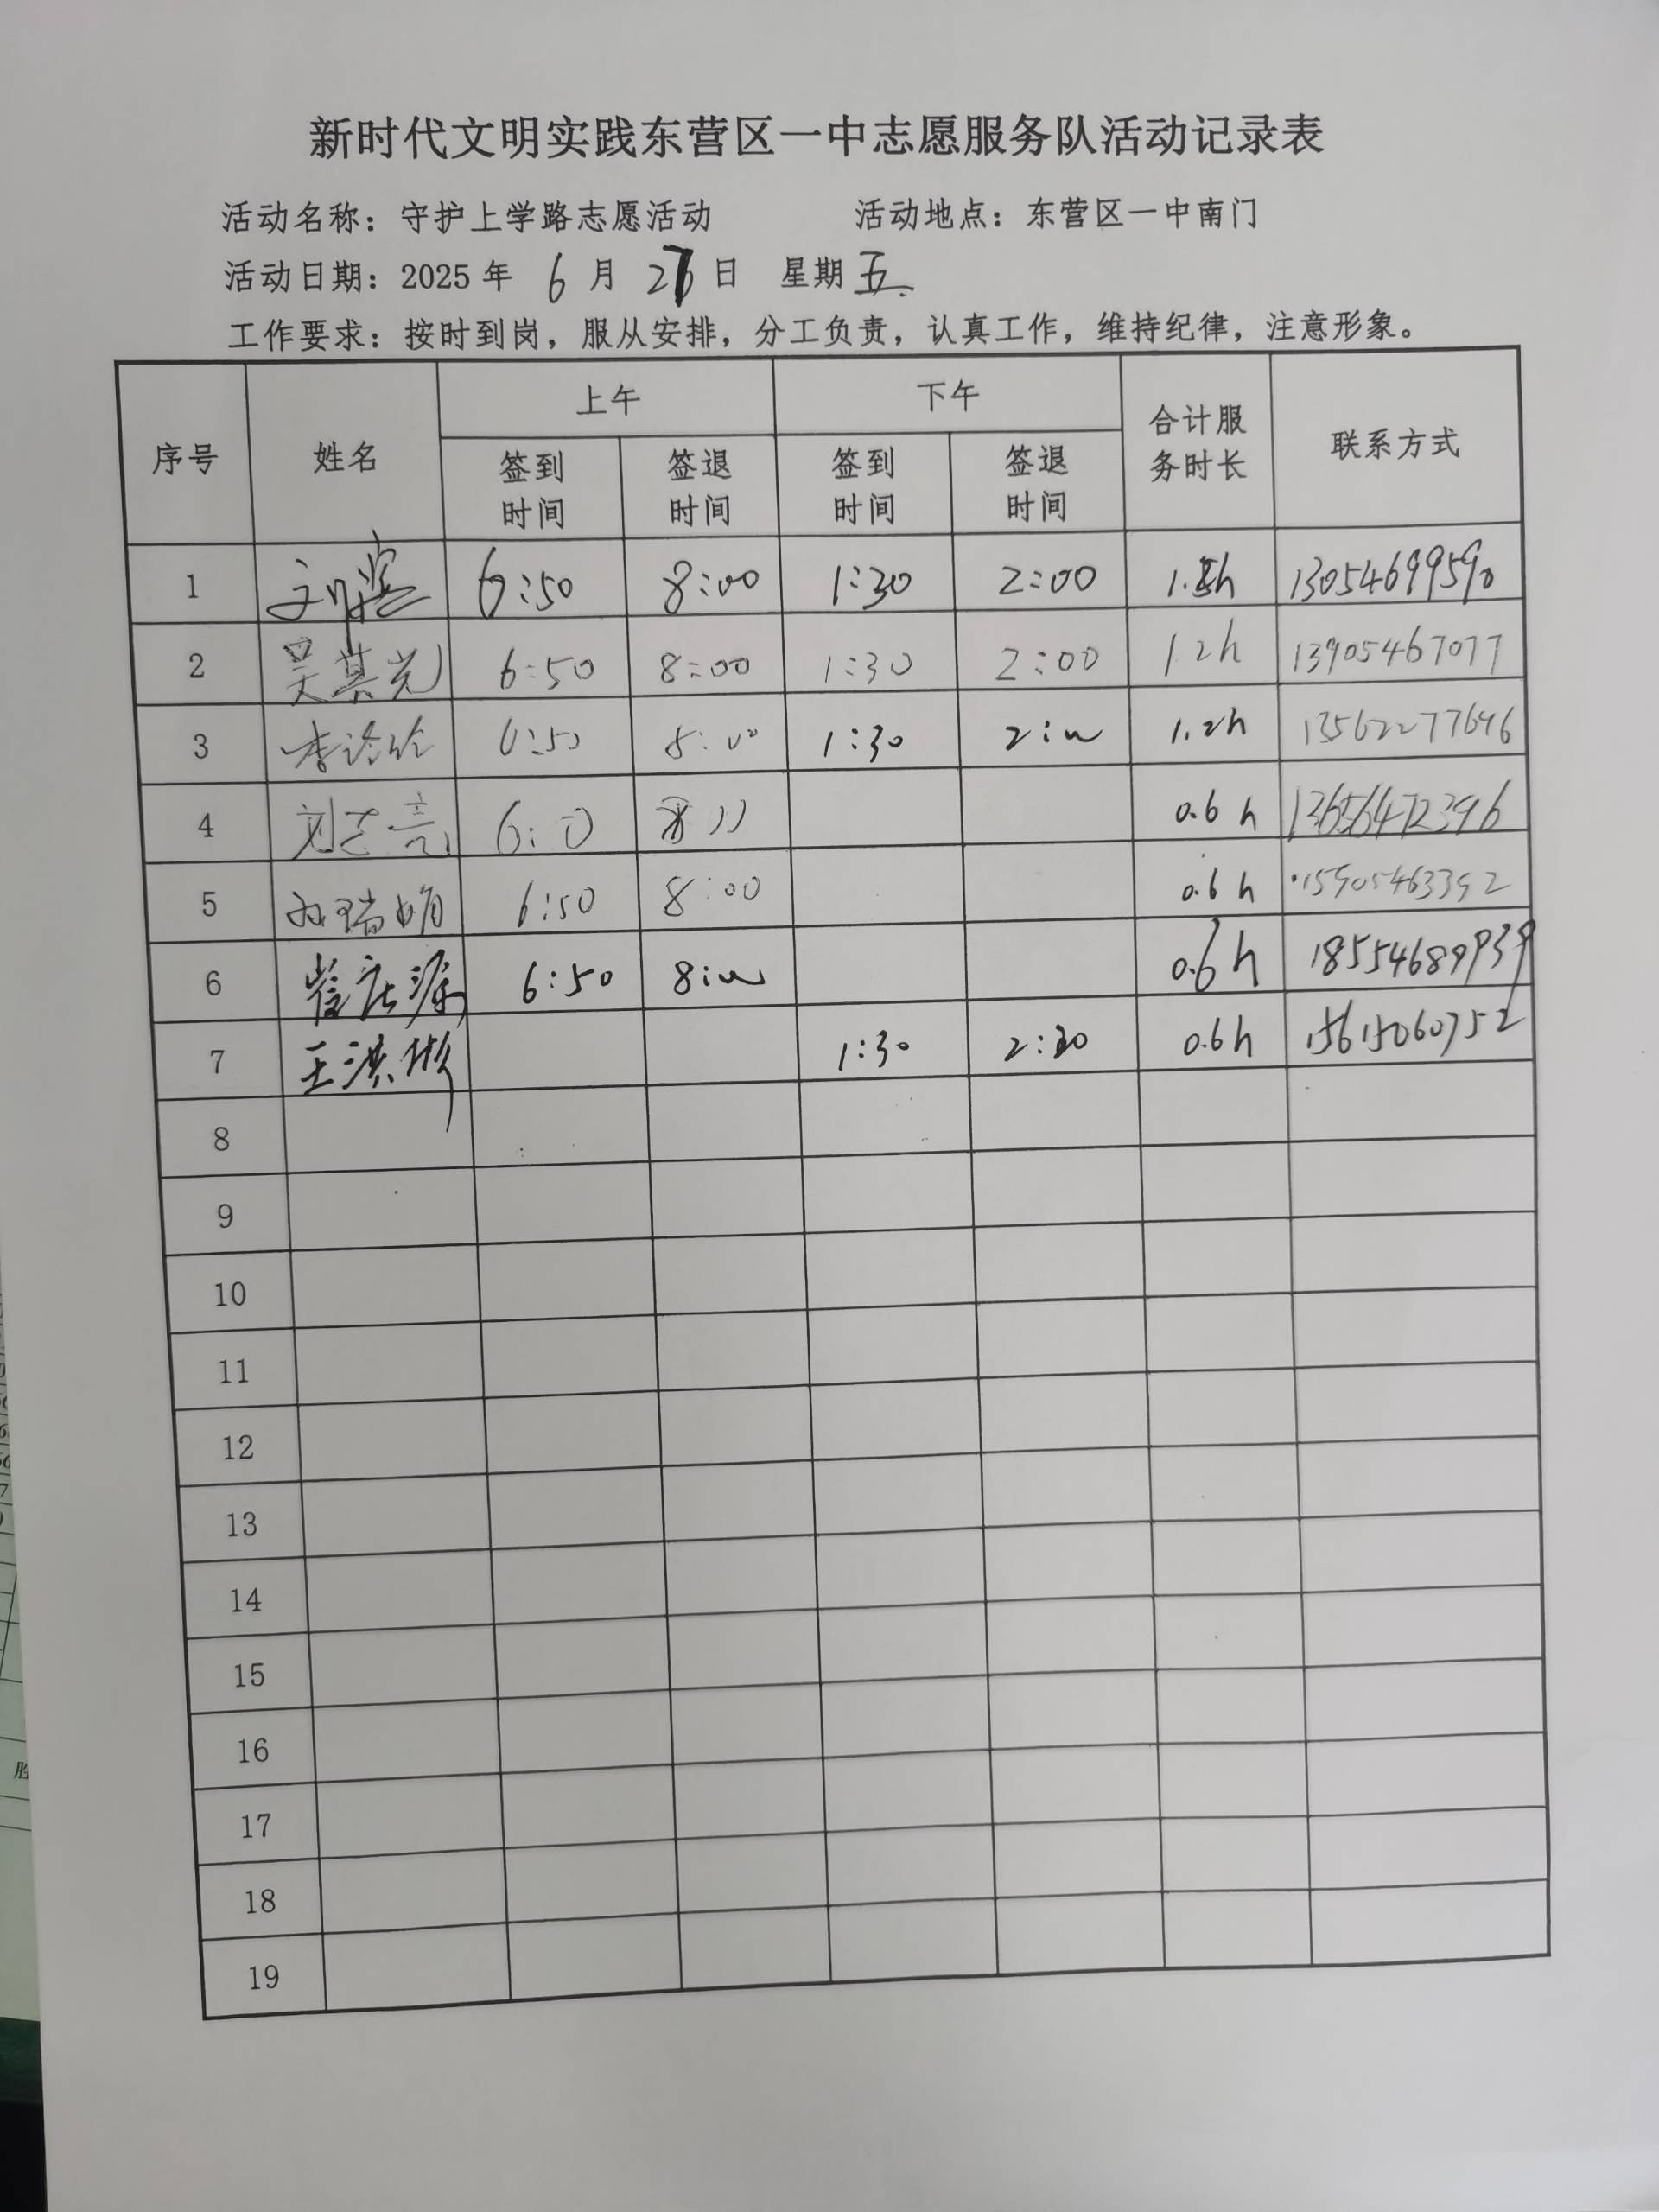 新时代文明实践东营区一中志愿服务队活动记录表
活动名称：守护上学路志愿活动 活动地点：东营区一中南门
活动日期：2025 年 6 月 27 日 星期五
工作要求：按时到岗，服从安排，分工负责，认真工作，维持纪律，注意形象。
序号 姓名 上午 下午 合计服务时长 联系方式
签到时间 签退时间 签到时间 签退时间
1 6:50 8:00 1:30 2:00 13054699590
2 吴其光 6:50 8:00 1:30 2:00 1.2h 13905467077
3 6:50 8:00 1:30 2:00 1.2h 13562277646
4 刘志亮 0.6h
5 孙瑞娟 6:50 8:00 0.6h 15905463392
6 6:50 8:00 0.6h 18554689939
7 王洪彬 1:30 0.6h 15615060752
8
9
10
11
12
13
14
15
16
17
18
19